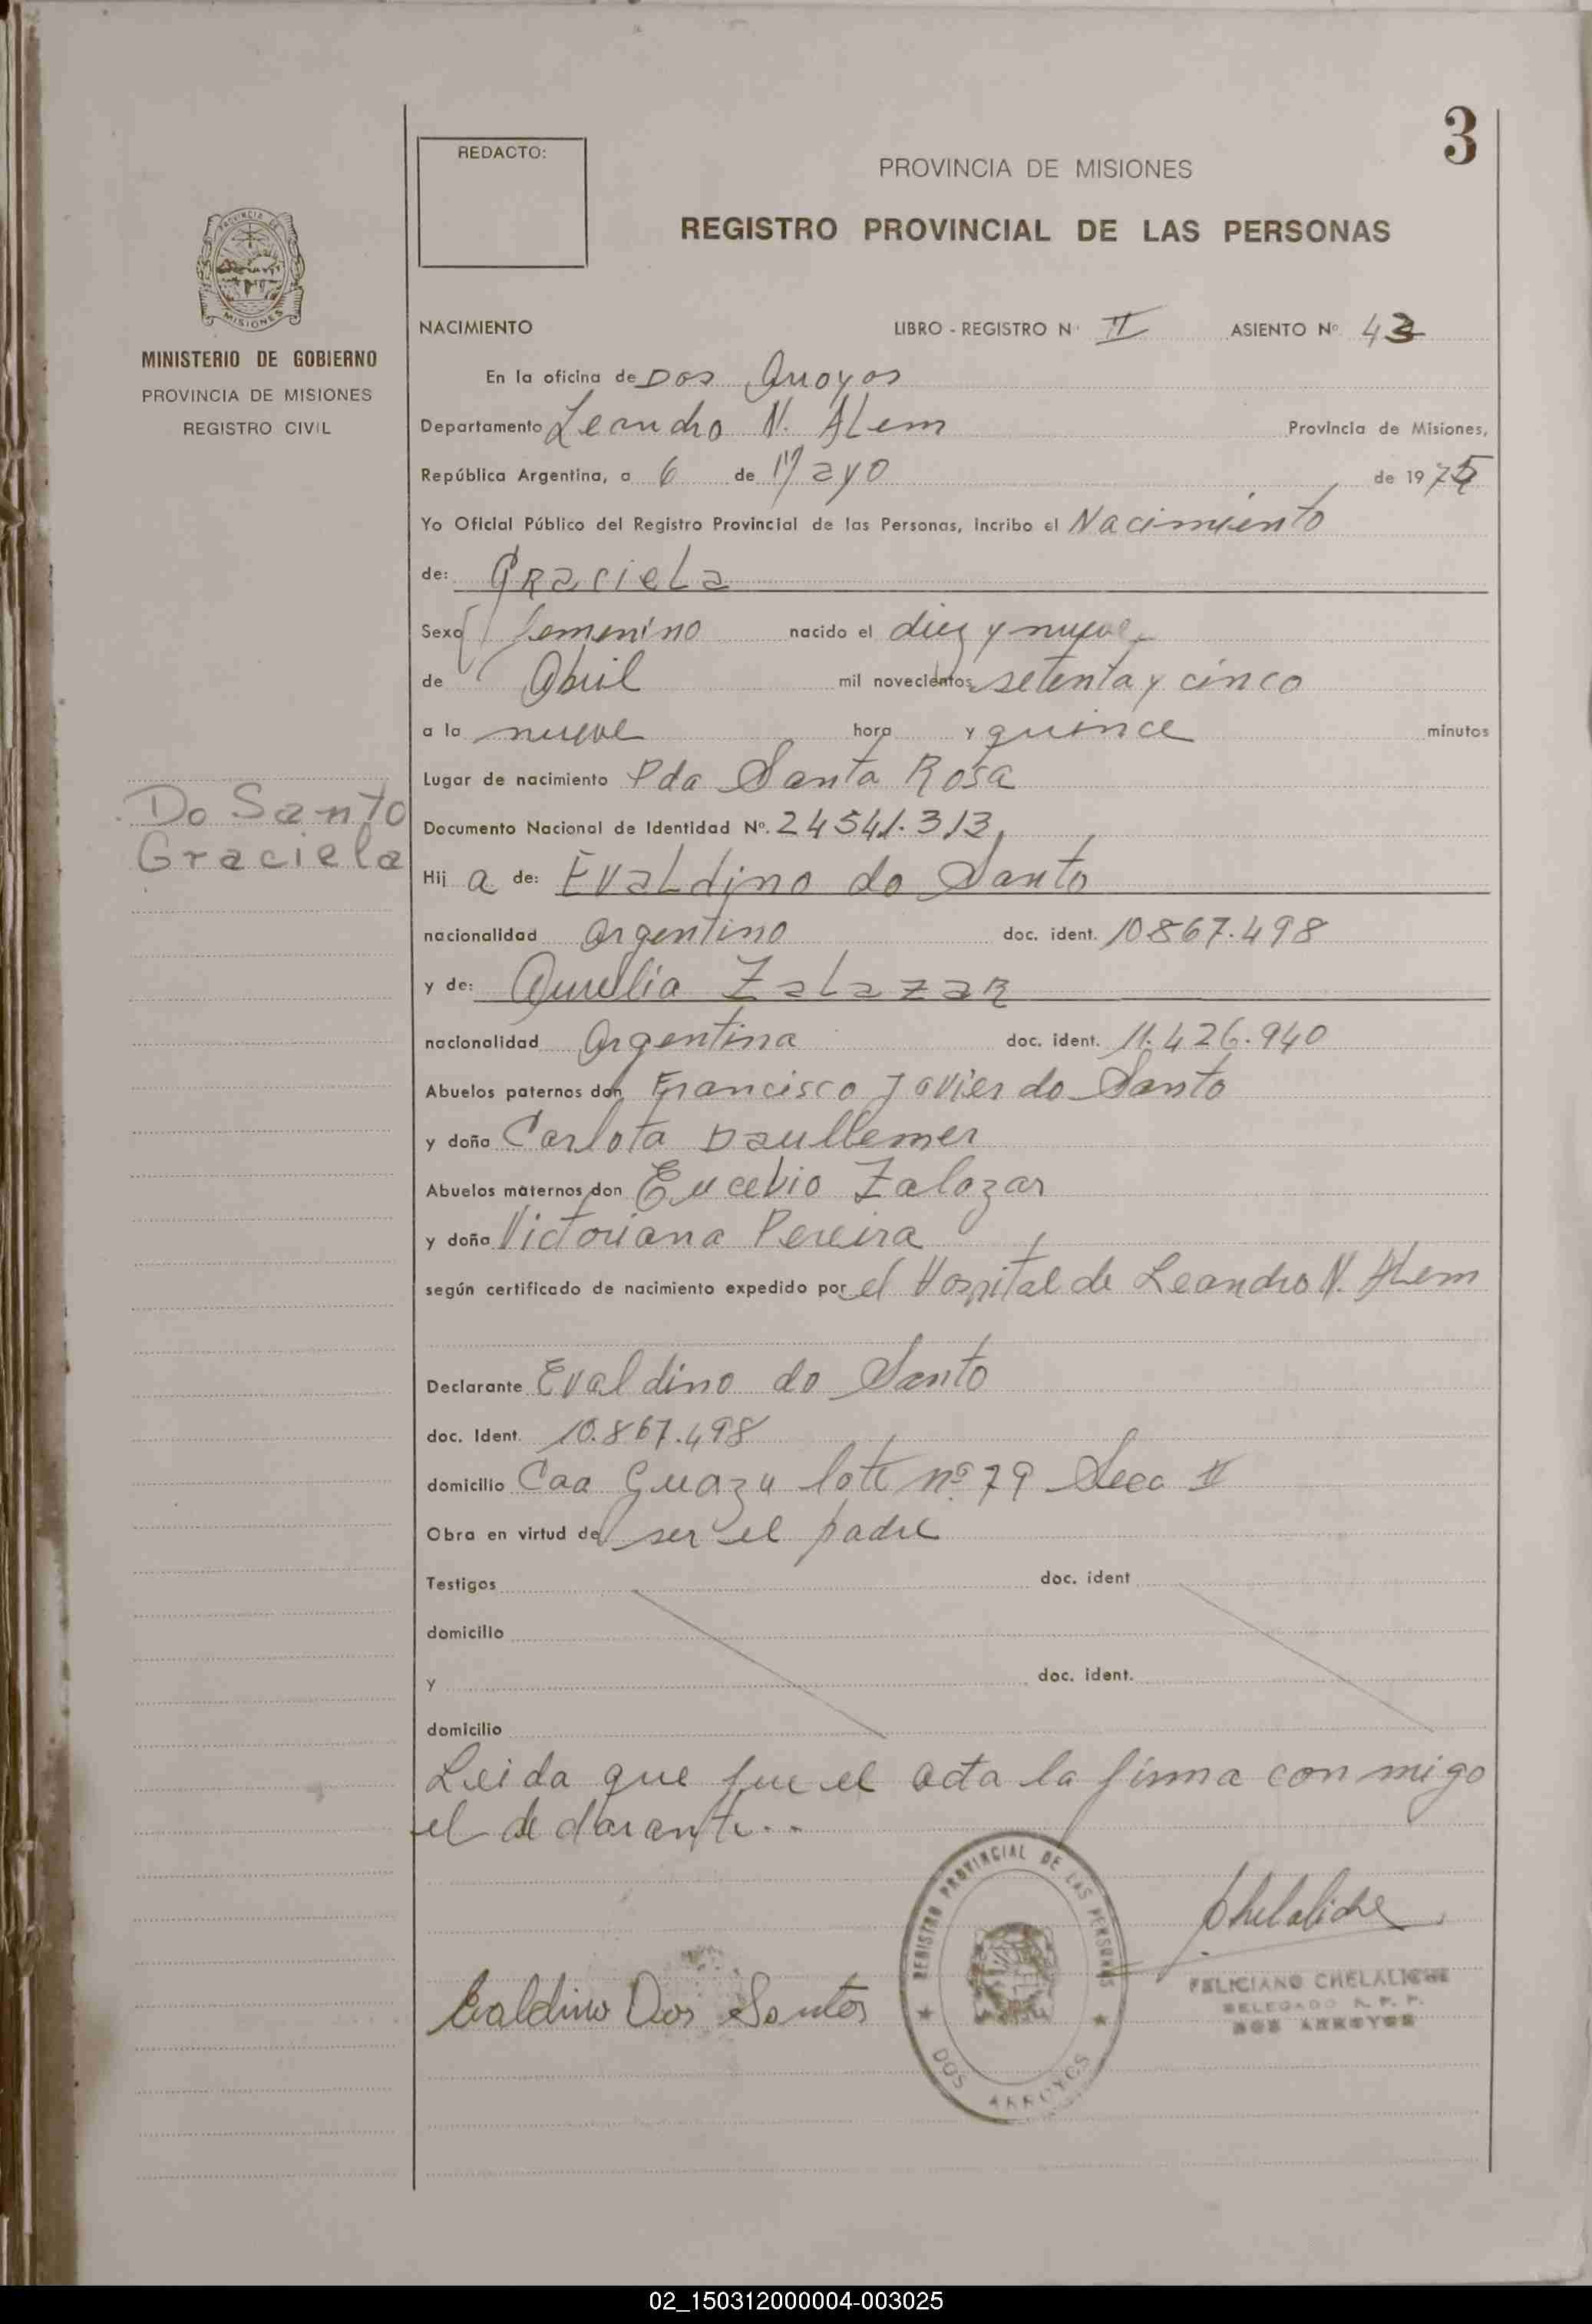 3
REDACTO:
PROVINCIA DE MISIONES
REGISTRO PROVINCIAL DE LAS PERSONAS
PROVINCIA DE
MISIONES
MINISTERIO DE GOBIERNO
PROVINCIA DE MISIONES
REGISTRO CIVIL
NACIMIENTO LIBRO - REGISTRO N° II ASIENTO N° 43
En la oficina de Dos Arroyos
Departamento Leandro N. ALem Provincia de Misiones,
República Argentina, a 6 de Mayo de 1975
Yo Oficial Público del Registro Provincial de las Personas, incribo el Nacimiento
de: GRacieLa
Sexo femenino nacido el diez y nueve
de Abril mil novecientos setenta y cinco
a la nueve hora y quince minutos
Lugar de nacimiento Pda Santa Rosa
Do Santo
Graciela
Documento Nacional de Identidad N°. 24541.313,
Hij a de: EvaLdino do Santo
nacionalidad argentino doc. ident. 10867.498
y de: Aurelia ZaLazaR
nacionalidad Argentina doc. ident. 11.426.940
Abuelos paternos don Francisco Javier do Santo
y doña Carlota
Abuelos maternos don Eucebio Zalazar
y doña Victoriana Pereira
según certificado de nacimiento expedido por el Hospital de Leandro N. ALem
Declarante Evaldino do Santo
doc. Ident. 10.867.498
domicilio Caa Guazu lote nº 79 Secc II
Obra en virtud de ser el padre
Testigos doc. ident
domicilio
y doc. ident.
domicilio
Leida que fue el acta la firma con migo
el declarante..
REGISTRO PROVINCIAL DE LAS PERSONAS
DOS ARROYOS
Chelaliche
Evaldino Dos Santos
FELICIANO CHELALICHE
DELEGADO R. P. P.
DOS ARROYOS
02_150312000004-003025